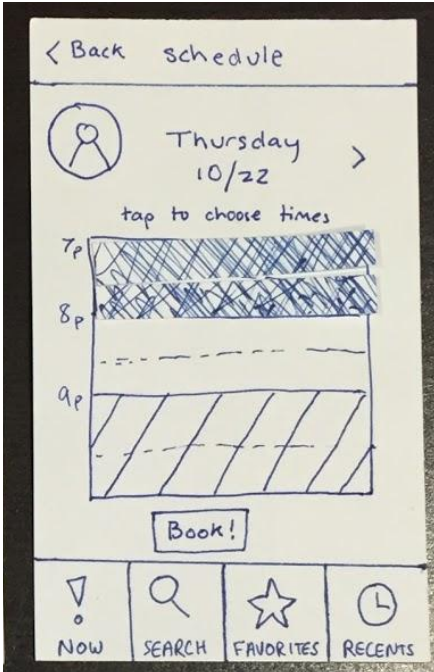 < Back schedule
Thursday
10/22 >
tap to choose times
7p
8p
9p
Book!
NOW SEARCH FAVORITES RECENTS